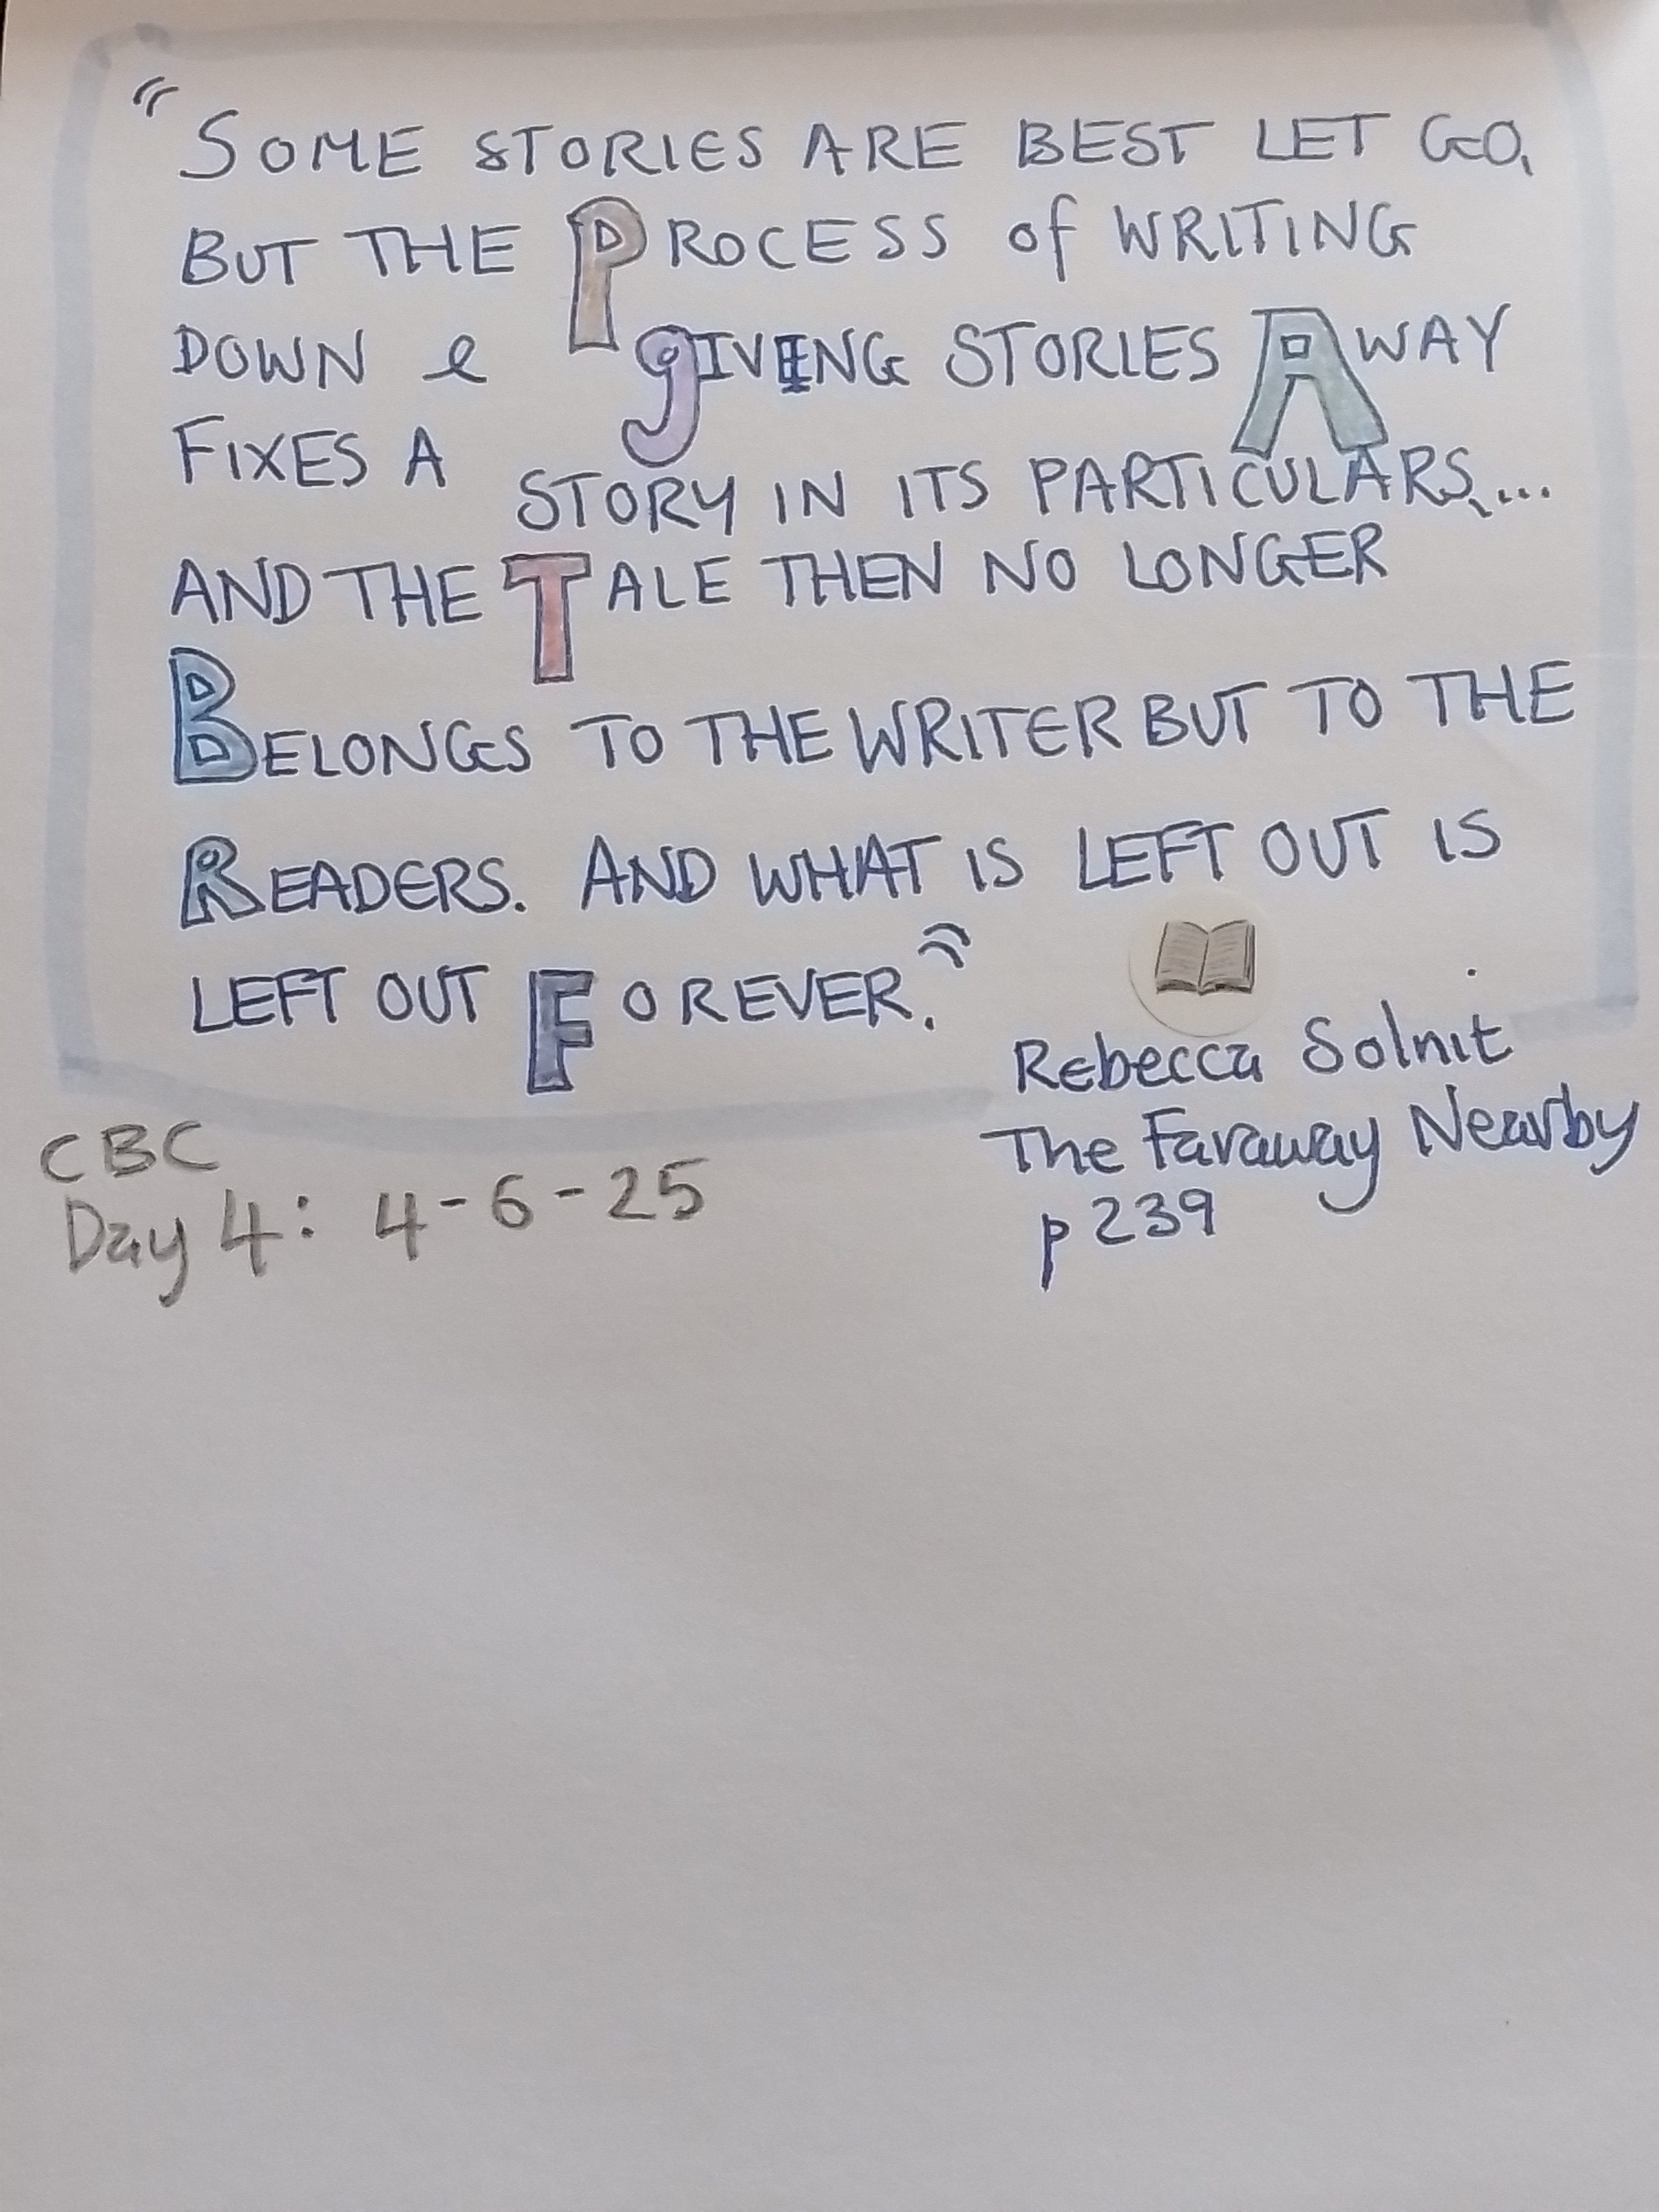 "SOME STORIES ARE BEST LET GO,
BUT THE PROCESS of WRITING
DOWN & gIVING STORIES AWAY
FIXES A STORY IN ITS PARTICULARS,...
AND THE TALE THEN NO LONGER
BELONGS TO THE WRITER BUT TO THE
READERS. AND WHAT IS LEFT OUT IS
LEFT OUT FOREVER."
Rebecca Solnit
The Faraway Nearby
p 239
CBC
Day 4: 4-6-25